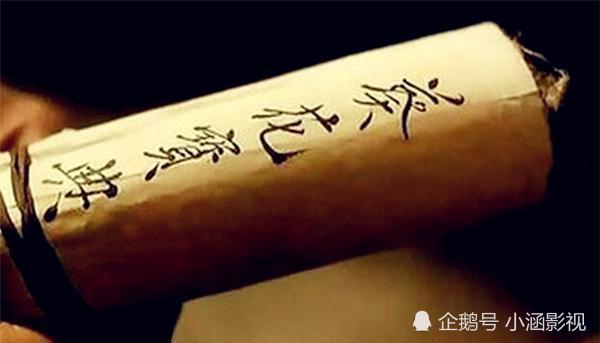 葵花寶典
企鹅号 小涵影视